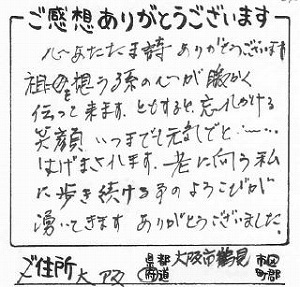 ご感想ありがとうございます
心あたたま詩 ありがとうございます
祖母を想う孫の心が暖かく
伝って来ます、ともすると、忘れかける
笑顔 いつまでも元気でと……
はげまされます、老に向う私
に歩き続ける事のよろこびが
湧いてきます ありがとうございました。
ご住所 大阪 都道府県 大阪市鶴見 市区町郡